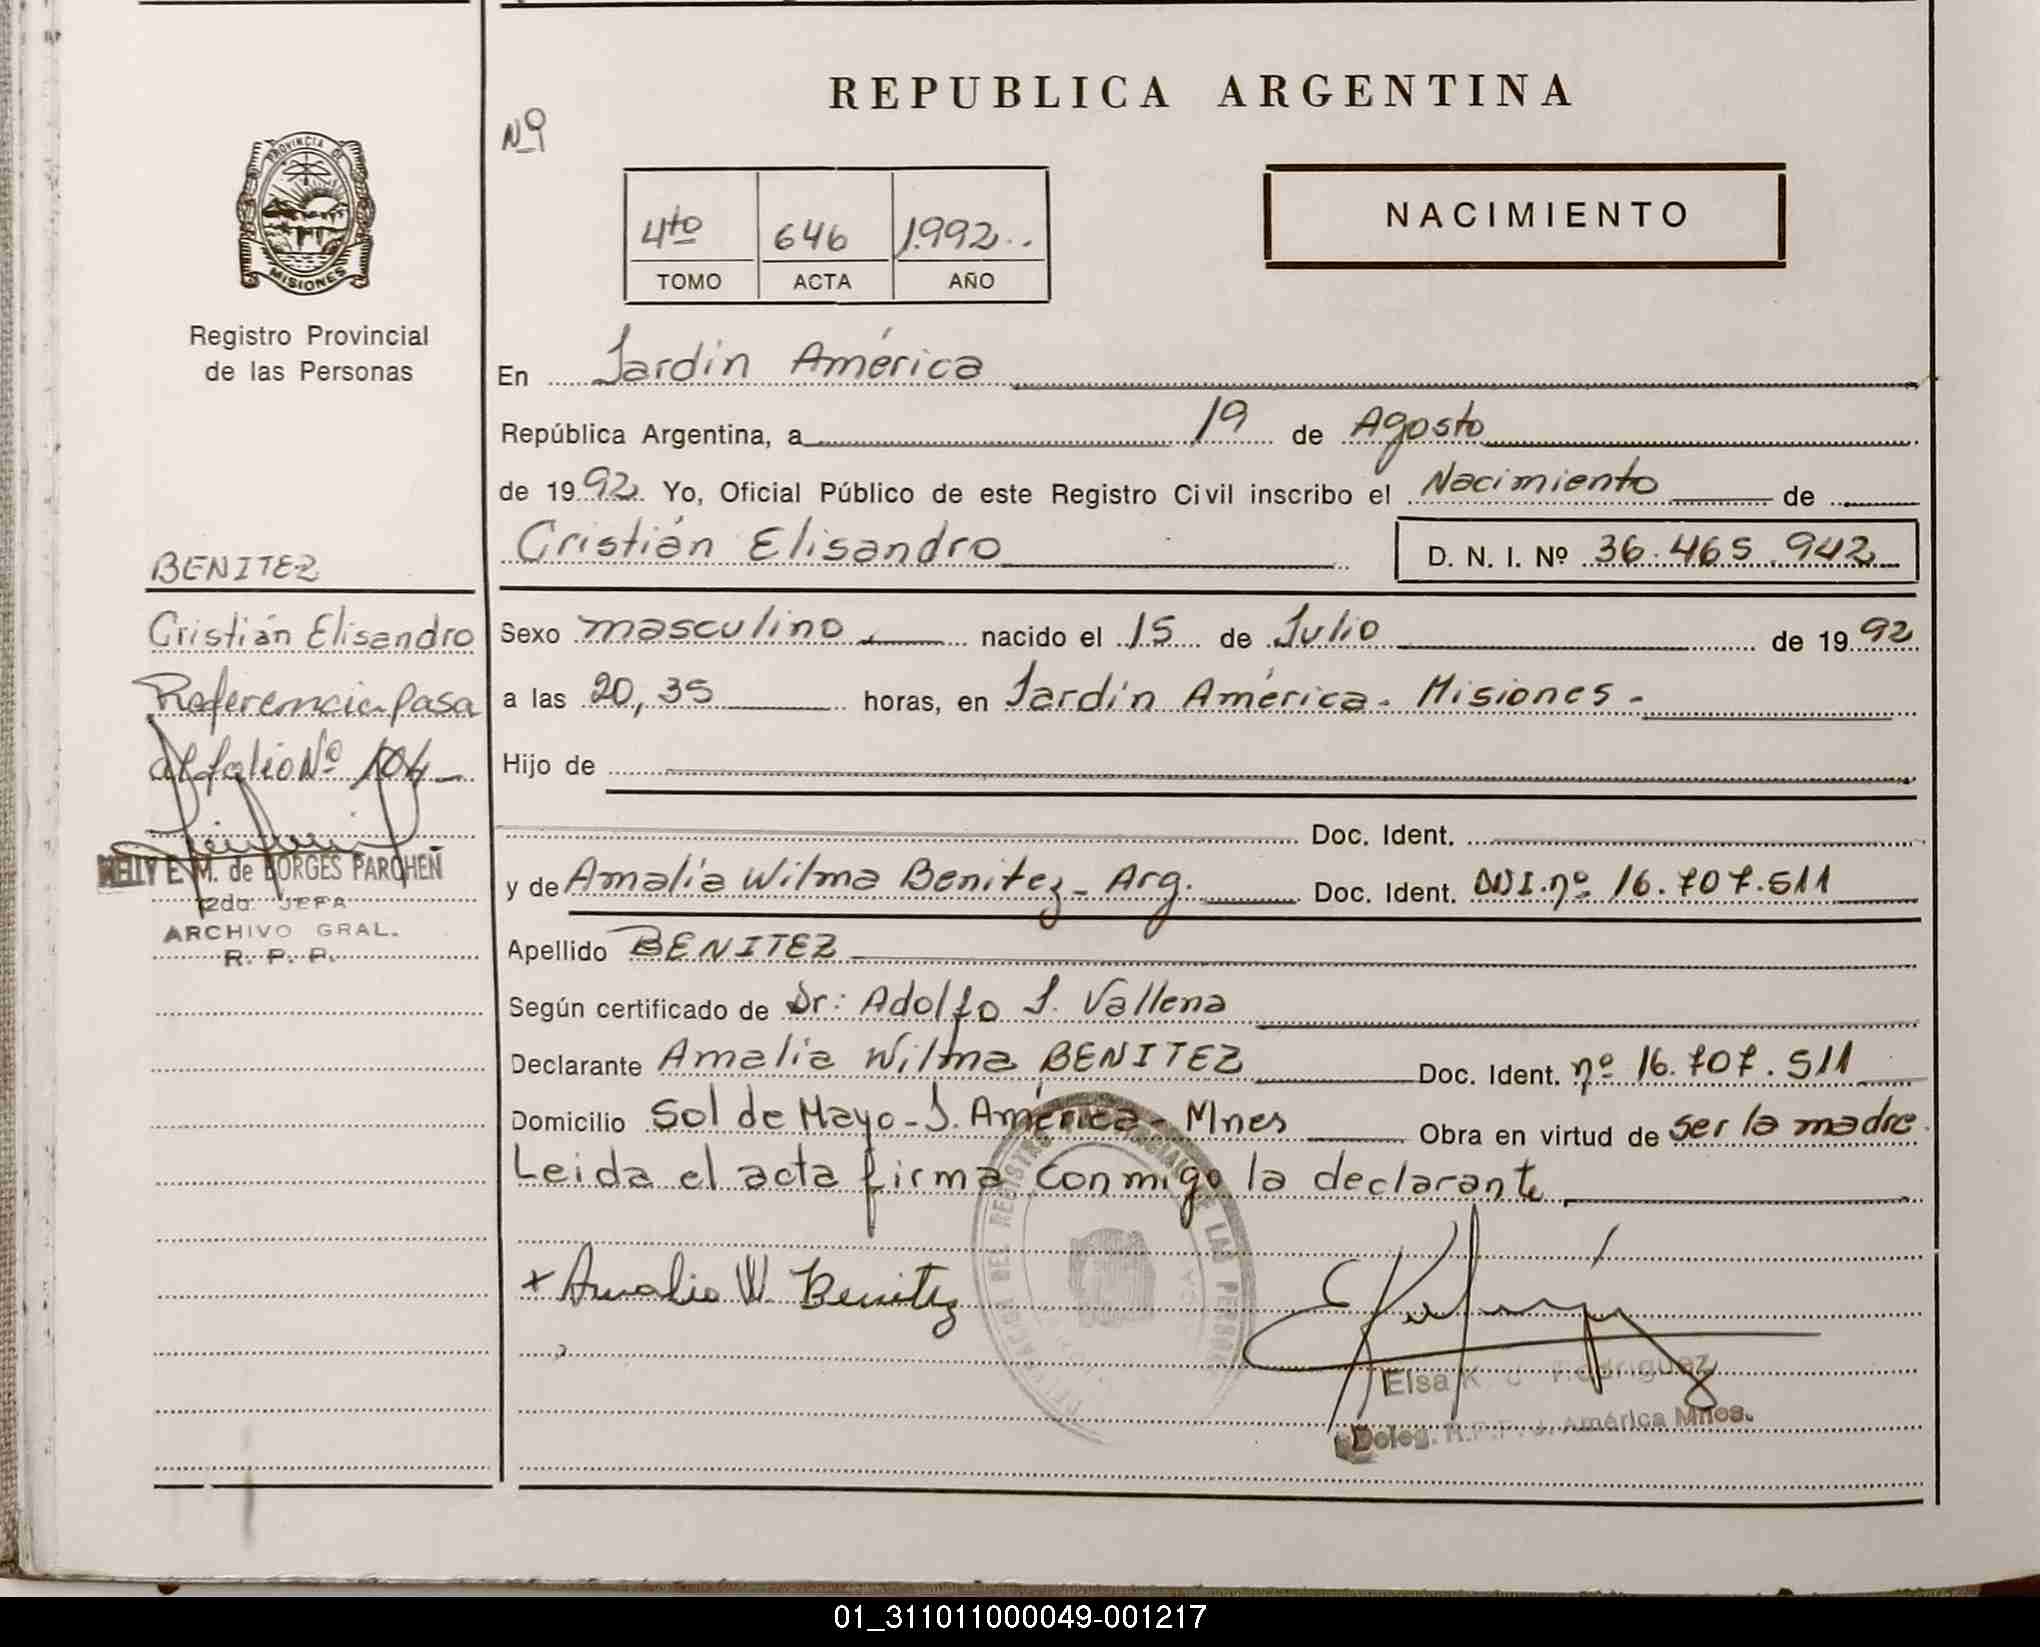 REPUBLICA ARGENTINA
Nº
NACIMIENTO
4to 646 1.992..
TOMO ACTA AÑO
PROVINCIA DE
MISIONES
Registro Provincial
de las Personas
BENITEZ
Cristián Elisandro
Referencia pasa
al folio Nº 104
NELLY E. M. de BORGES PARCHEN
2da. JEFA
ARCHIVO GRAL.
R. P. P.
En Jardín América
República Argentina, a 19 de Agosto
de 1992. Yo, Oficial Público de este Registro Civil inscribo el Nacimiento de
Cristián Elisandro D. N. I. Nº 36.465.942
Sexo masculino nacido el 15 de Julio de 1992
a las 20,35 horas, en Jardín América. Misiones.
Hijo de
Doc. Ident.
y de Amalia Wilma Benitez_ Arg. Doc. Ident. DNI.nº 16.707.511
Apellido BENITEZ
Según certificado de Dr: Adolfo J. Vallena
Declarante Amalia Wilma BENITEZ Doc. Ident. nº 16.707.511
Domicilio Sol de Mayo - J. América - Mnes Obra en virtud de ser la madre.
Leida el acta firma conmigo la declarante
+ Amalia W. Benitez
Elsa K. Rodriguez
Deleg. R.P.P. J. América Mnes.
01_311011000049-001217